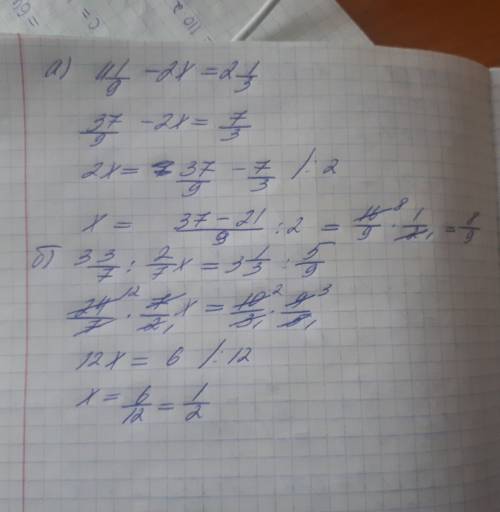 а) 4 1/9 - 2x = 2 1/3
37/9 - 2x = 7/3
2x = 37/9 - 7/3 /:2
x = (37 - 21)/9 : 2 = 16/9 8 · 1/2 1 = 8/9
б) 3 3/7 : 2/7 x = 3 1/3 : 5/9
24/7 12 · 7/2 1 x = 10/3 2 1 · 9/5 3 1
12x = 6 /:12
x = 6/12 = 1/2